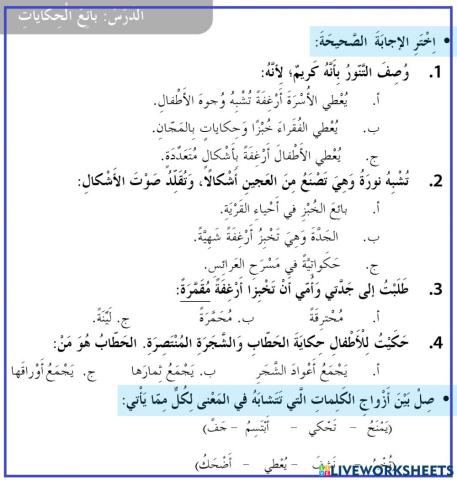 الدَّرْسُ: بائِعُ الْحِكاياتِ
• اِخْتَرِ الإجابَةَ الصَّحيحَةَ:
1. وُصِفَ التَّنّورُ بِأَنَّهُ كَريمٌ؛ لِأَنَّهُ:
أ. يُعْطي الأُسْرَةَ أَرْغِفَةً تُشْبِهُ وُجوهَ الأَطْفالِ.
ب. يُعْطي الفُقَراءَ خُبْزًا وَحِكاياتٍ بِالمَجّانِ.
ج. يُعْطي الأَطْفالَ أَرْغِفَةً بِأَشْكالٍ مُتَعَدِّدَةٍ.
2. تُشْبِهُ نورَةُ وَهِيَ تَصْنَعُ مِنَ العَجينِ أَشْكالًا، وَتُقَلِّدُ صَوْتَ الأَشْكالِ:
أ. بائِعَ الخُبْزِ في أَحْياءِ القَرْيَةِ.
ب. الجَدَّةَ وَهِيَ تَخْبِزُ أَرْغِفَةً شَهِيَّةً.
ج. حَكَواتِيَّةً في مَسْرَحِ العَرائِسِ.
3. طَلَبْتُ إِلى جَدَّتي وَأُمّي أَنْ تَخْبِزا أَرْغِفَةً مُقَمَّرَةً:
أ. مُحْتَرِقَةً ب. مُحَمَّرَةً ج. لَيِّنَةً.
4. حَكَيْتُ لِلْأَطْفالِ حِكايَةَ الحَطّابِ وَالشَّجَرَةِ المُنْتَصِرَةِ. الحَطّابُ هُوَ مَنْ:
أ. يَجْمَعُ أَعْوادَ الشَّجَرِ ب. يَجْمَعُ ثِمارَها ج. يَجْمَعُ أَوْراقَها
• صِلْ بَيْنَ أَزْواجِ الكَلِماتِ الَّتي تَتَشابَهُ في المَعْنى لِكُلٍّ مِمّا يَأْتي:
(يَمْنَحُ – تَحْكي – أَبْتَسِمُ – جَفَّ)
– يُعْطي – أَضْحَكُ)
LIVEWORKSHEETS